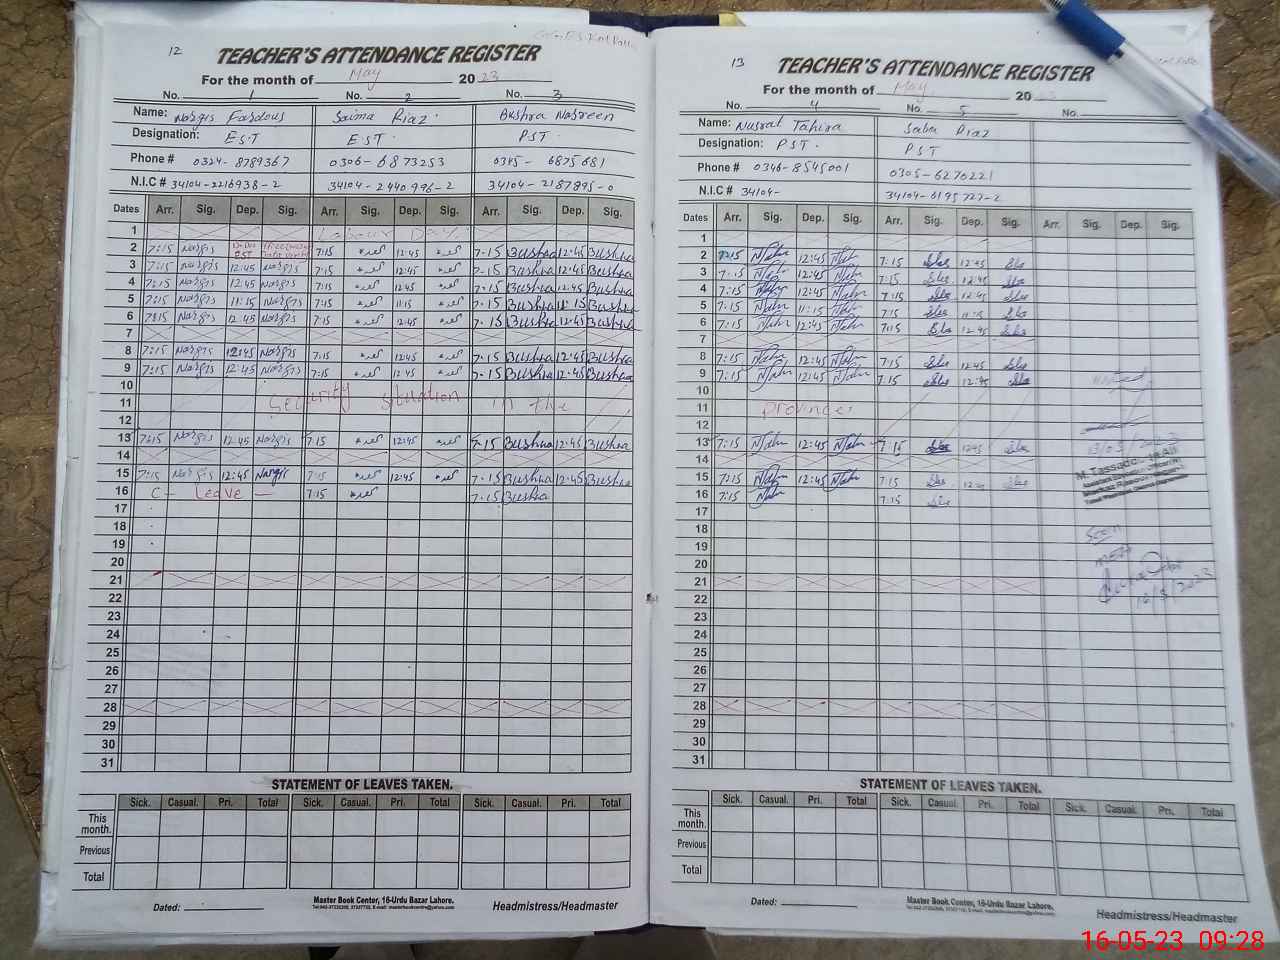 12
TEACHER'S ATTENDANCE REGISTER
For the month of May 2023
No. 1 No. 2 No. 3
Name: Nargis Fardous Saima Riaz. Bushra Nasreen
Designation: E.S.T EST. PST.
Phone # 0324-8789367 0306-6873253 0345-6875681
N.I.C # 34104-2216938-2 34104-2440996-2 34104-2187895-0
Dates Arr. Sig. Dep. Sig. Arr. Sig. Dep. Sig. Arr. Sig. Dep. Sig.
1 Labour Day
2 7:15 Nargis 7:15 12:45 7.15 Bushra 12:45 Bushra
3 7:15 Nargis 12:45 Nargis 7:15 12:45 7.15 Bushra 12:45 Bushra
4 7:15 Nargis 12:45 Nargis 7:15 12:45 7.15 Bushra 12:45 Bushra
5 7:15 Nargis 11:15 Nargis 7:15 11:15 7.15 Bushra 11:15 Bushra
6 7:15 Nargis 12:45 Nargis 7:15 2:45 7.15 Bushra 12:45 Bushra
7
8 7:15 Nargis 12:45 Nargis 7:15 12:45 7.15 Bushra 12:45 Bushra
9 7:15 Nargis 12:45 Nargis 7:15 12:45 7.15 Bushra 12:45 Bushra
10
11 Security situation in the
12
13 7:15 Nargis 12:45 Nargis 7:15 12:45 7.15 Bushra 12:45 Bushra
14
15 7:15 Nargis 12:45 Nargis 7:15 12:45 7.15 Bushra 12:45 Bushra
16 C- Leave - 7:15 7.15 Bushra
17
18
19
20
21
22
23
24
25
26
27
28
29
30
31
STATEMENT OF LEAVES TAKEN.
Sick. Casual. Pri. Total Sick. Casual. Pri. Total Sick. Casual. Pri. Total
This month.
Previous
Total
Dated:
Master Book Center, 16-Urdu Bazar Lahore.
Headmistress/Headmaster
13
TEACHER'S ATTENDANCE REGISTER
For the month of May 2023
No. 4 No. 5 No.
Name: Nusrat Tahira Saba Riaz
Designation: PST. PST
Phone # 0346-8545001 0305-6270221
N.I.C # 34104- 34104-6195727-2
Dates Arr. Sig. Dep. Sig. Arr. Sig. Dep. Sig. Arr. Sig. Dep. Sig.
1
2 7:15 12:45 7:15 12:45
3 7:15 12:45 7:15 12:45
4 7:15 12:45 7:15 12:45
5 7:15 11:15 7:15 11:15
6 7:15 12:45 7:15 12:45
7
8 7:15 12:45 7:15 12:45
9 7:15 12:45 7:15 12:45
10
11 province.
12
13 7:15 12:45 7:15 12:45
14
15 7:15 12:45 7:15 12:45
16 7:15 7:15
17
18
19
20
21
22
23
24
25
26
27
28
29
30
31
13/05/2023
Seen
16/5/2023
STATEMENT OF LEAVES TAKEN.
Sick. Casual. Pri. Total Sick. Casual. Pri. Total Sick. Casual. Pri. Total
This month.
Previous
Total
Dated:
Master Book Center, 16-Urdu Bazar Lahore.
Headmistress/Headmaster
16-05-23 09:28